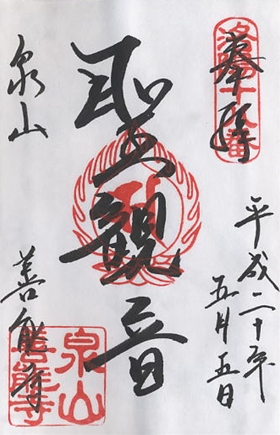 奉拝
洛陽十八番
平成二十年
五月五日
聖観音
泉山
善能寺
泉山
善能寺